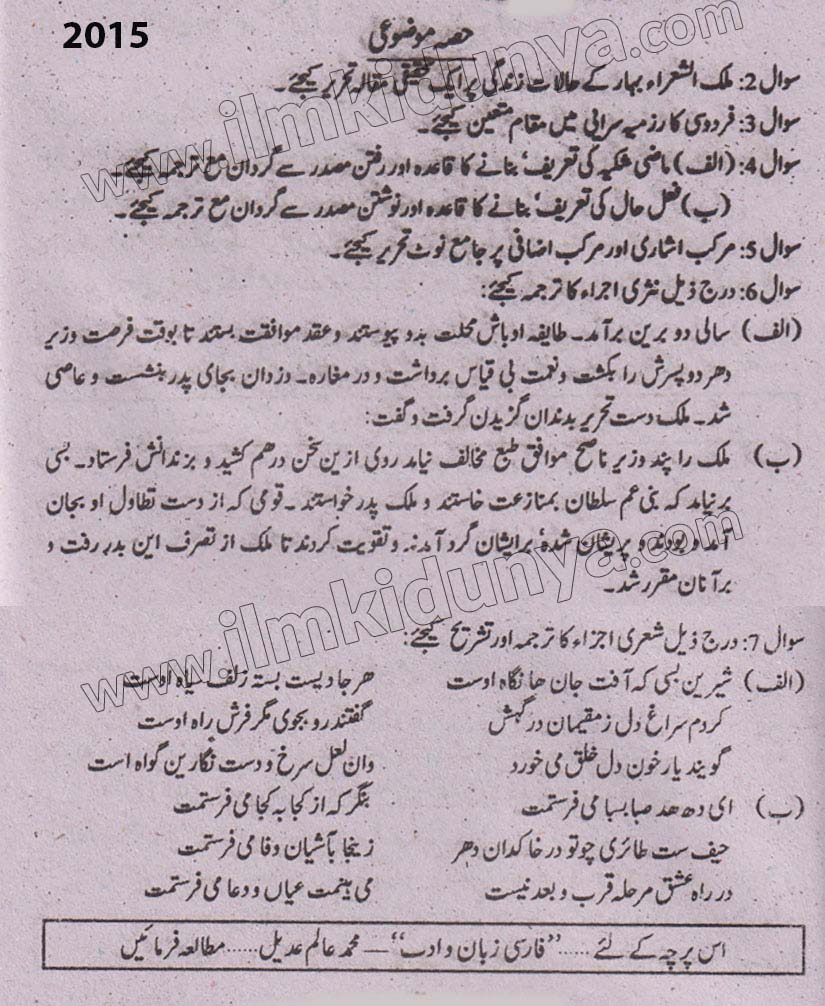 2015
حصہ موضوعی
سوال 2: ملک الشعراء بہار کے حالات زندگی پر ایک تحقیقی مقالہ تحریر کیجئے۔
سوال 3: فردوسی کا رزمیہ سرائی میں مقام متعین کیجئے۔
سوال 4: (الف) ماضی شکیہ کی تعریف' بنانے کا قاعدہ اور رفتن مصدر سے گردان مع ترجمہ کیجئے۔
(ب) فعل حال کی تعریف' بنانے کا قاعدہ اور نوشتن مصدر سے گردان مع ترجمہ کیجئے۔
سوال 5: مرکب اشاری اور مرکب اضافی پر جامع نوٹ تحریر کیجئے۔
سوال 6: درج ذیل نثری اجزاء کا ترجمہ کیجئے:
(الف) سالی دو برین برآمد۔ طایفہ اوباش محلت بدو پیوستند و عقد موافقت بستند تا بوقت فرصت وزیر
دھر دو پسرش را بکشت و نعمت بی قیاس برداشت و در مغارہ۔ دزدان بجای پدر بنشست و عاصی
شد۔ ملک دست تحریر بدندان گزیدن گرفت و گفت:
(ب) ملک را پند وزیر ناصح موافق طبع مخالف نیامد روی ازین سخن درھم کشید و بزندانش فرستاد۔ بسی
برنیامد کہ بنی عم سلطان بمنازعت خاستند و ملک پدر خواستند۔ قومی کہ از دست تطاول او بجان
آمد و بودند و پریشان شدہ' برایشان گرد آمدند و تقویت کردند تا ملک از تصرف این بدر رفت و
برآنان مقرر شد۔
سوال 7: درج ذیل شعری اجزاء کا ترجمہ اور تشریح کیجئے:
(الف) شیرین بسی کہ آفت جان ھا نگاہ اوست ھر جا دیست بستہ زلف سیاہ اوست
کردم سراغ دل ز مقیمان درگہش گفتند رو بجوی مگر فرش راہ اوست
گویند یار خون دل خلق می خورد وان لعل سرخ و دست نگارین گواہ است
(ب) ای دھد ھد صبا بسبا می فرستمت بنگر کہ از کجا بہ کجا می فرستمت
حیف ست طائری چو تو در خاکدان دھر زینجا بآشیان وفا می فرستمت
در راہ عشق مرحلہ قرب و بعد نیست می بینمت عیاں و دعا می فرستمت
اس پرچہ کے لئے ...... "فارسی زبان و ادب" — محمد عالم عدیل ...... مطالعہ فرمائیں
www.ilmkidunya.com
www.ilmkidunya.com